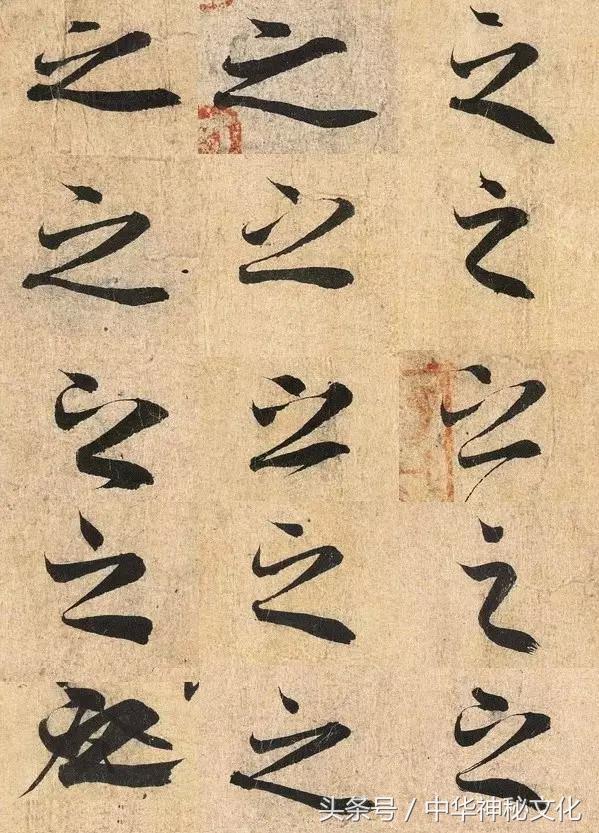 之 之 之
之 之 之
之 之 之
之 之 之
之 之 之
头条号 / 中华神秘文化